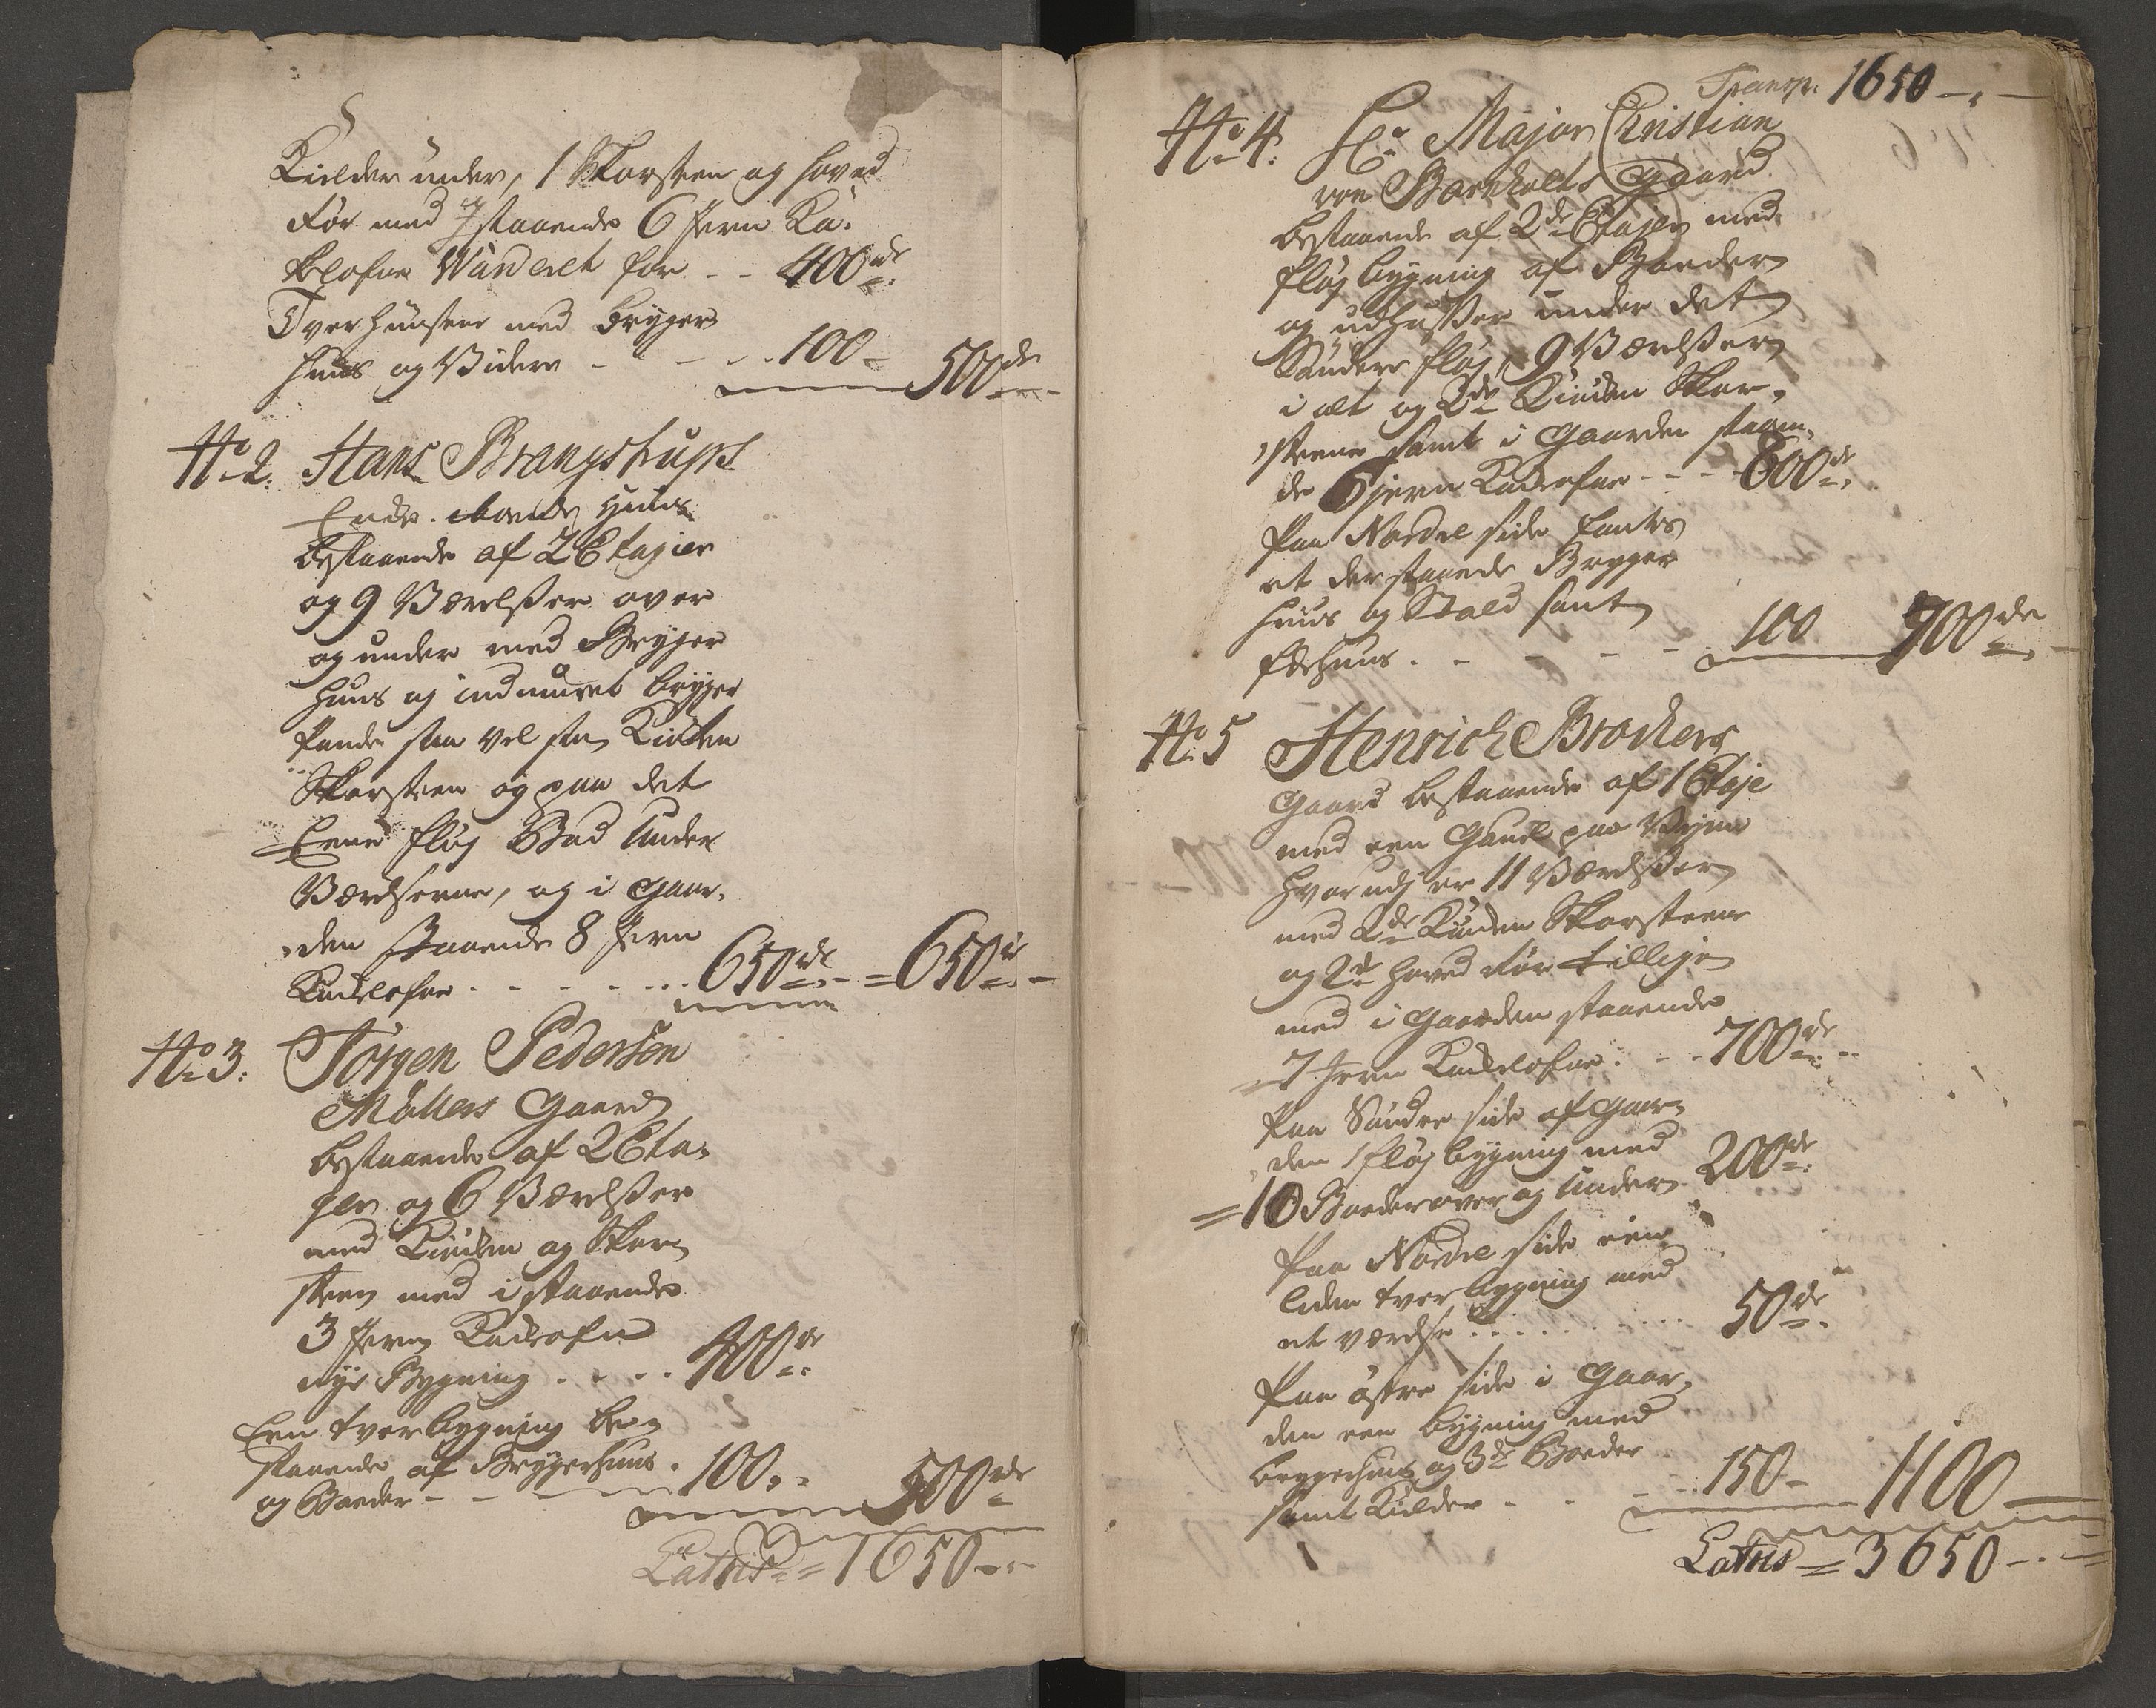 Kielder under, 1 Skorsten og hoved
dør med istaaende 6 Jern Ka-
kelofne Wurderet for -- 400 rdr.
Tverhuusene med Brygers
huus og Videre - - - 100 - 500 rdr
No 2. Hans Brangstrups
Huus
bestaaende af 2 Etagier
og 9 Værelser over
og under med Brygger
huus og indmuret brygger
Pande saa vel som Kiøkken
Skorsteen og paa det
Eene fløy Bad under
Værelserne, og i Gaar-
den staaende 8 Jern
Kackelofne - - - - 650 rdr. - = 650 rdr -
No 3. Jörgen Pedersen
Möllers Gaard
bestaaende af 2 Eta-
ger og 6 Værelser
med Kiøcken og Skor-
steen med istaaende
3 Jern Kackelofne
nye Bygning . . . . 400 rdr
Een tverbygning be-
staaende af Bryggerhuus
og Boeder - - 100 - 500 rdr
Latus = 1650 - -
Transp. 1650 - -
No 4. Hr. Major Christian
von Gaard
bestaaende af 2de Etager med
fløy bygning af Boeder
og udhusser under det
Søndere fløy, 9 Værelser
i alt og 2de Kiøcken Skor-
steene samt i Gaarden staaen-
de 6 jern Kackelofne - - - 600 rdr.
Paa Nordre side
et der staaende Brygger
huus og Stald samt
fæhuus . - - - 100 700 rdr
No 5 Henrich Brochers
Gaard bestaaende af 1 Etage
med een Gavl paa Vejen
hvorudj er 11 Værelser
med 2de Kiøcken Skorsteene
og 2de hoved dør tillige
med i Gaarden staaende
7 Jern Kackelofne . - - 700 rdr. -
Paa Søndre side af Gaar-
den 1 fløy bygning med
= 10 Boeder over og under 200 rdr.
Paa Nordre side een
liden tverbygning med
et værelse . . . . . . . . . . 50 rdr.
Paa östre side i Gaar-
den een bygning med
bryggerhuus og 3de Boeder
samt Kielder - - - 150 - 1100
Latus = 3650 - . -